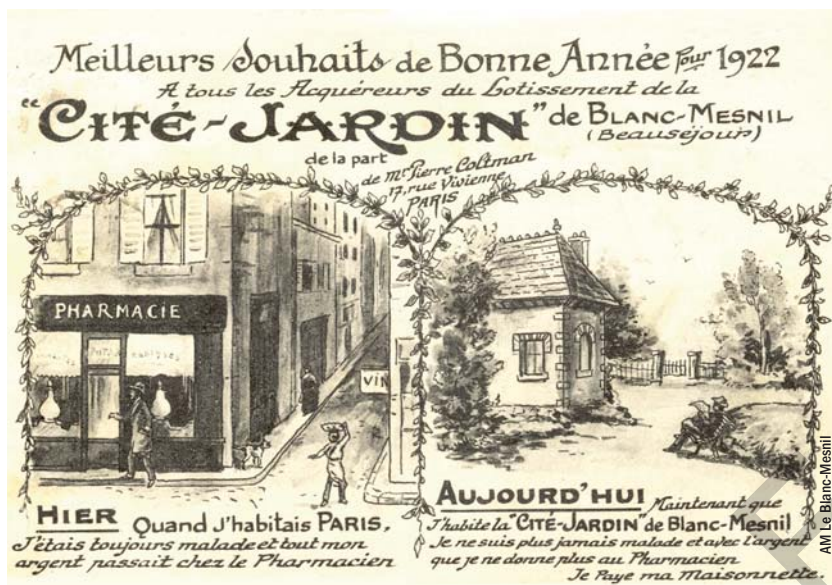 Meilleurs Souhaits de Bonne Année Pour 1922
A tous les Acquéreurs du Lotissement de la
"CITÉ-JARDIN" de BLANC-MESNIL
(Beauséjour)
de la part
de Mr Pierre Coltman
17, rue Vivienne
PARIS
PHARMACIE
VIN
HIER Quand J'habitais PARIS,
J'étais toujours malade et tout mon
argent passait chez le Pharmacien
AUJOURD'HUI Maintenant que
J'habite la "CITÉ-JARDIN" de Blanc-Mesnil
Je ne suis plus jamais malade et avec l'argent
que je ne donne plus au Pharmacien
Je Paye ma Maisonnette.
AM Le Blanc-Mesnil